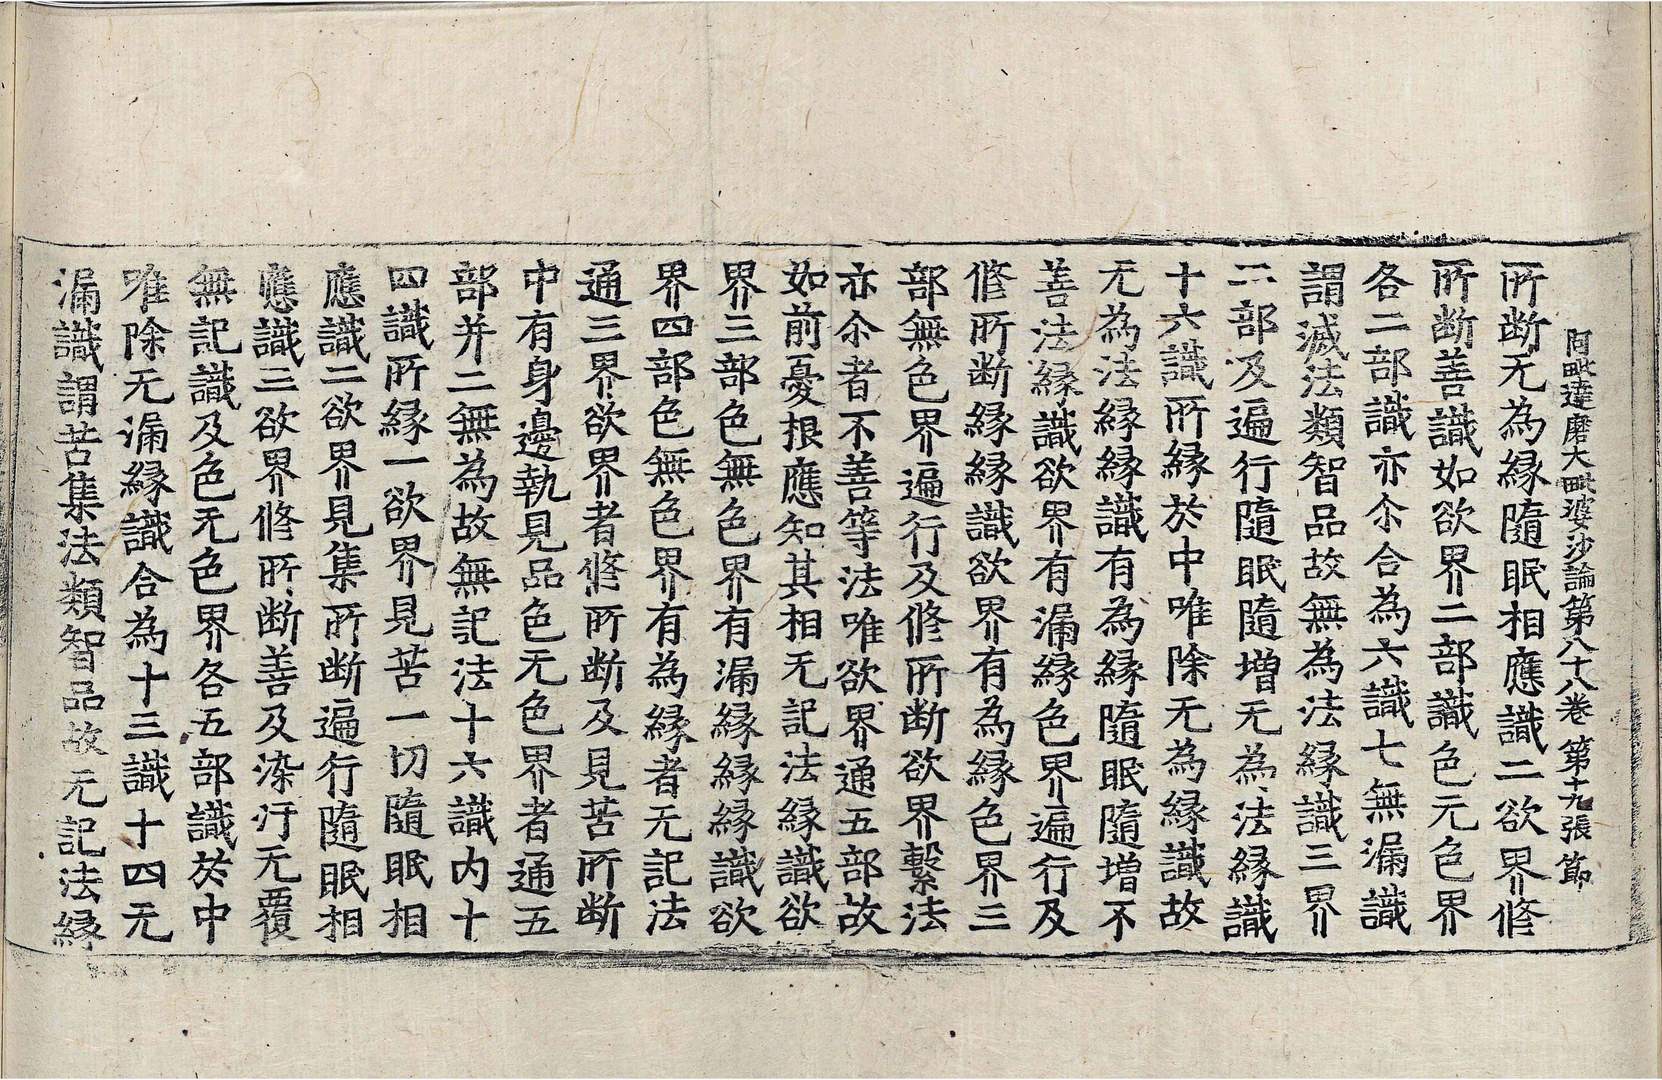 阿毗達磨大毗婆沙論第八十八卷 第十九張 節
所斷无為緣隨眠相應識二欲界修
所斷善識如欲界二部識色无色界
各二部識亦尒合為六識七無漏識
謂滅法類智品故無為法緣識三界
二部及遍行隨眠隨增无為法緣識
十六識所緣於中唯除无為緣識故
无為法緣緣識有為緣隨眠隨增不
善法緣識欲界有漏緣色界遍行及
修所斷緣緣識欲界有為緣色界三
部無色界遍行及修所斷欲界繫法
亦尒者不善等法唯欲界通五部故
如前憂根應知其相无記法緣識欲
界三部色無色界有漏緣緣緣識欲
界四部色無色界有為緣者无記法
通三界欲界者修所斷及見苦所斷
中有身邊執見品色无色界者通五
部并二無為故無記法十六識內十
四識所緣一欲界見苦一切隨眠相
應識二欲界見集所斷遍行隨眠相
應識三欲界修所斷善及染汙无覆
無記識及色无色界各五部識於中
唯除无漏緣識合為十三識十四无
漏識謂苦集法類智品故无記法緣